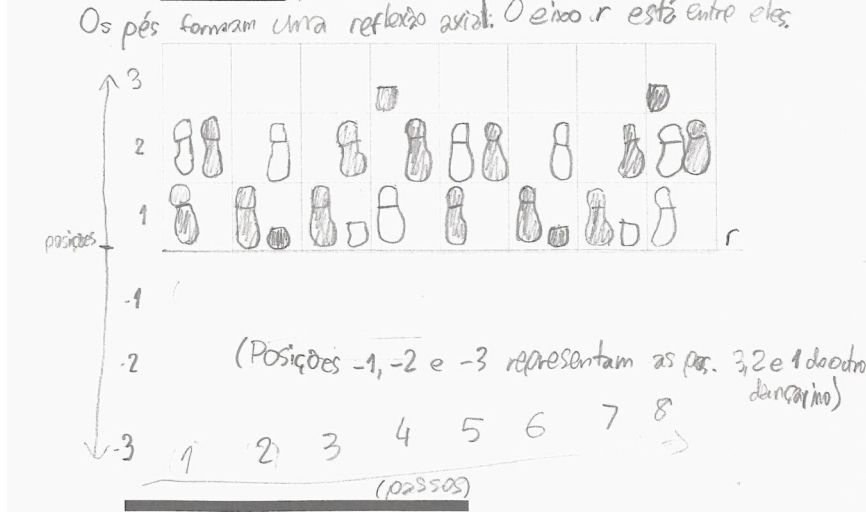 Os pés formam uma reflexão axial. O eixo r está entre eles.
3
2
1
posições
r
-1
-2
(Posições -1, -2 e -3 representam as pos. 3, 2 e 1 do outro
dançarino)
-3 1 2 3 4 5 6 7 8
(passos)